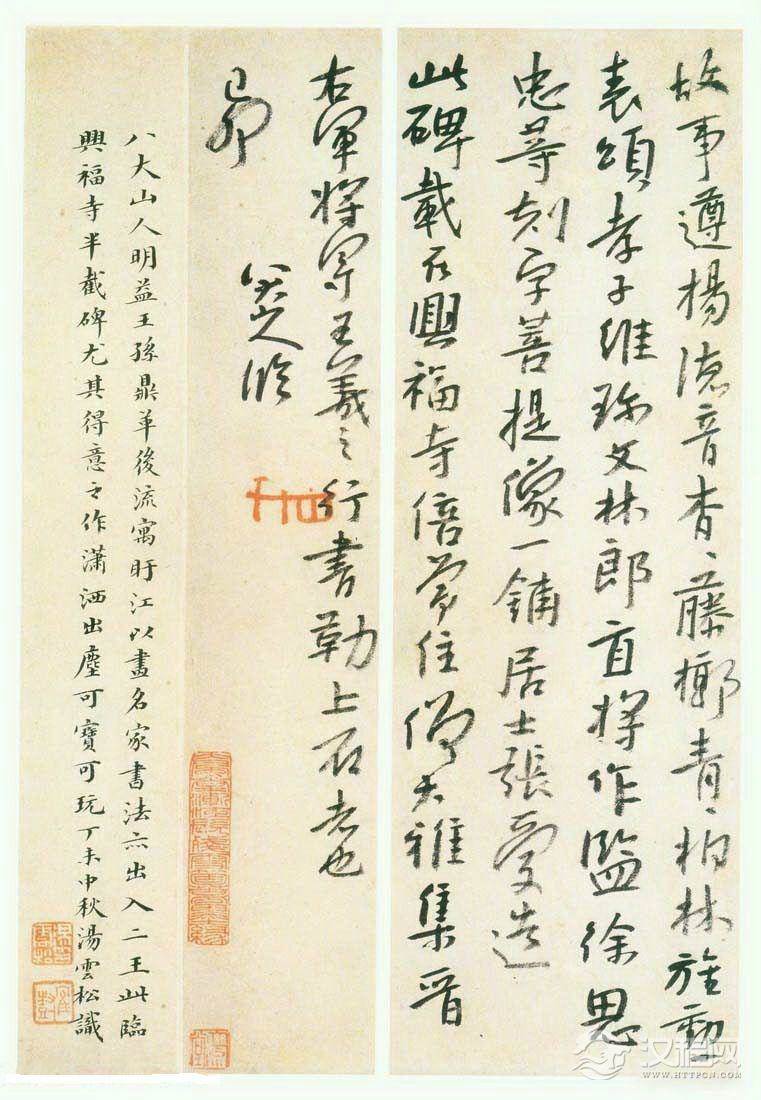 故事遵揚德音杳〻藤槨青〻柏林旌勳
表頌孝子維文林郎直將作監徐思
忠等刻字菩提像一鋪居士張愛造
此碑載在興福寺倍常住僧大雅集晋
右軍將軍王羲之行書勒上石者也
己卯
八大山人臨
八大山人明益王孫鼎革後流寓盱江以畫名家書法亦出入二王此臨
興福寺半截碑尤其得意之作瀟洒出塵可寶可玩丁未中秋湯雲松識
汉程网
WWW.HTTPCN.COM